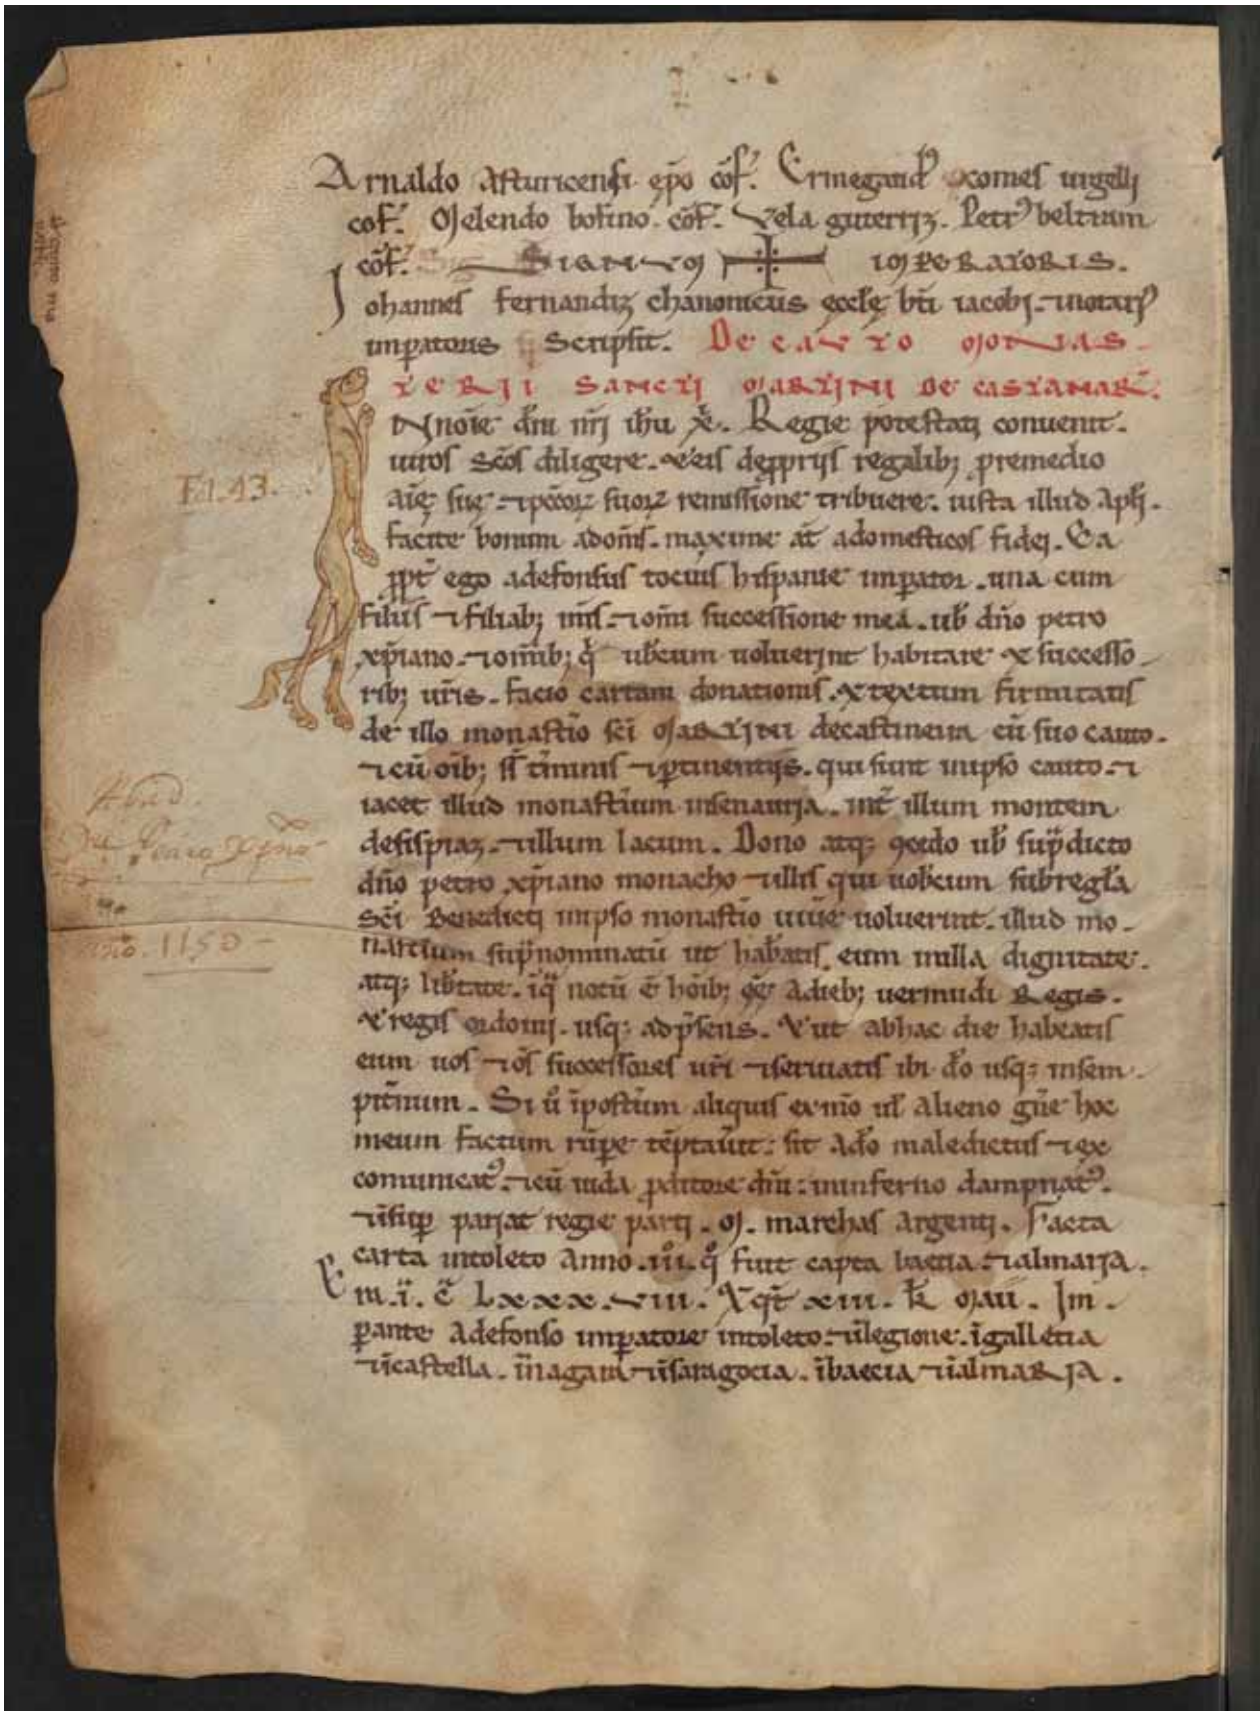 Arnaldo Asturicensi ep̃o cõf. Ermegaud᾽ comes urgelli
cof. Melendo bofino. cõf. Vela guterriz. Petr᾽ beltram
cõf. SIGNVM IMPERATORIS.
Johannes fernandiz chanonicus eccłe b̃ti iacobi. ⁊ notari᾽
imperatoris Scripsit. De CAVTO MONAS-
TERII SANCTI MARTINI DE CASTANAR̃.
IN noĩe dñi nrĩ ihũ x̃. Regie potestati convenit.
uiros sc̃os diligere. & eis de pprijs regalib; premedio
aĩę suę. ⁊ pccõꝝ suoꝝ remissione tribuere. iusta illud Ap̃li.
facite bonum ad om̃s. maxime aũt adomesticos fidei. Ea
ppt̃ ego adefonsus tocius hispanie imperator. una cum
filiis ⁊ filiab; m̃is. ⁊ om̃i successione mea. uob̃ dño petro
xp̃iano. ⁊ om̃ib; q̃ uob̃cum uoluerint habitare & successo-
rib; ur̃is. facio cartam donationis. & textum firmitatis
de illo monast̃io sc̃i MARTINI de castineira cũ suo cauto.
⁊ cũ om̃ib; suis t̃minis ⁊ p̲tinentijs. qui sunt inipso cauto. ⁊
iacet illud monast̃ium insenauria. int̃ illum montem
de sispiaz. ⁊ illum lacum. Dono atq; ꝯcedo uob̃ sup̃dicto
dño petro xp̃iano monacho ⁊ illis qui uob̃cum subregl̃a
Sc̃i Benedicti inipso monast̃io uiu̾e uoluerint. illud mo-
nast̃ium sup̃nominatũ ut hab̃atis eum in illa dignitate.
atq; lib̃tate. ĩ q̃ notũ ẽ hoĩb; ẽẽ Adieb; uermudi Regis.
& regis ordonii. usq; ad p̃sens. & ut abhac die habeatis
eum uos ⁊ om̃s successores ur̃i ⁊ seruiatis ibi dõ usq; insem-
pit̃num. Si ũ ĩpost̃um aliquis ex m̃o ut̃ alieno gñe hoc
meum factum rũpe tẽptau̾it: sit Adõ maledictus ⁊ ex
comunicat᾽. ⁊ cũ iuda p̲ditore dñi: ininferno dampnat᾽.
⁊ insup̲ pariat regie parti. M. marchas argenti. Facta
carta intoleto Anno. iii. q̊ fuit capta baecia. ⁊ almaria.
E M. ĩ. C̃ LXXX.VIII. & q̊t XIII. k̃ Maii. Im-
p̲ante Adefonso imp̲atore intoleto. ⁊ ĩlegione. ĩgalletia
⁊ ĩcastella. ĩnagara ⁊ ĩsaragocia. ĩbaecia ⁊ ĩalmaRIA.
Fol. 43.
Abad.
Dn Pedro Xpno
Año. 1150